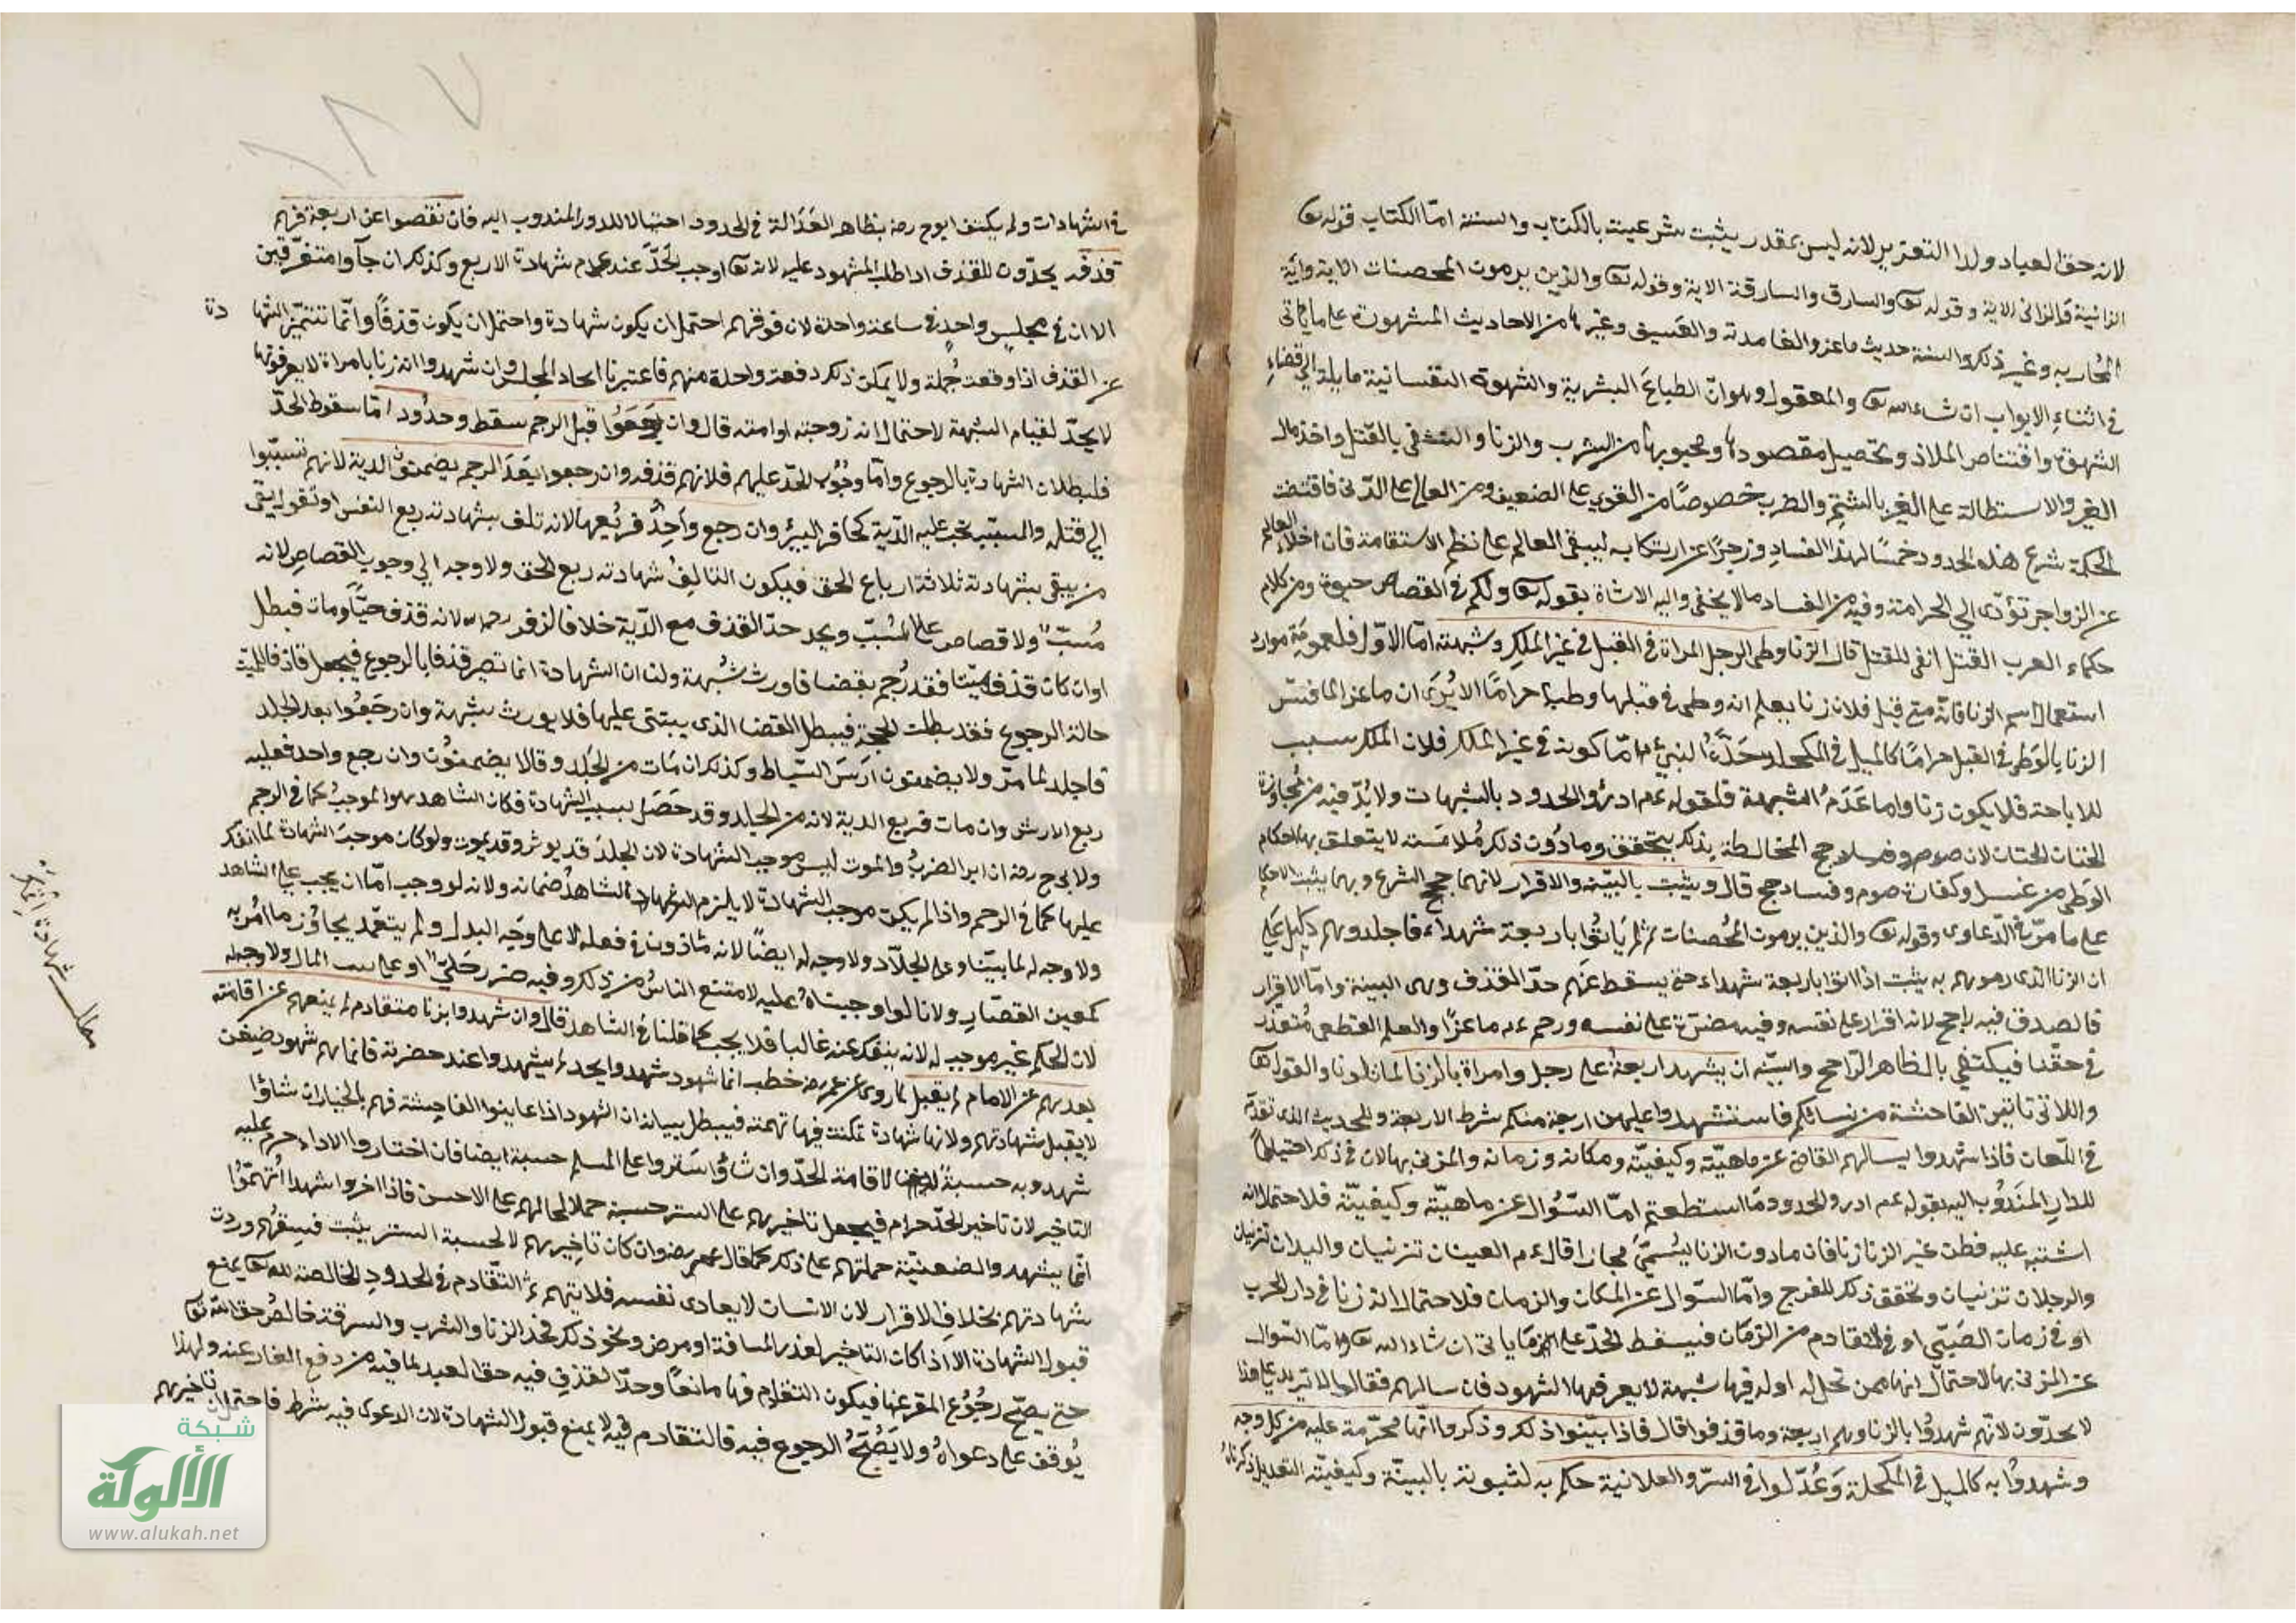 لانه حق العباد ولا التعزير لانه ليس بمقدر يثبت شرعيته بالكتاب والسنة اما الكتاب قوله تع
الزانية والزاني الاية وقوله تع والسارق والسارقة الاية وقوله تع والذين يرمون المحصنات الاية واية
المحاربه وغير ذلك والسنة حديث ماعز والغامدية والعسيف وغيرها من الاحاديث المشهورة على ما ياتى
في اثناء الابواب ان شاء الله تع والمعقول وهو ان الطباع البشرية والشهوة النفسانية مايلة الى قضاء
الشهوة واقتناص الملاذ وتحصيل مقصودها ومحبوبها من الشرب والزنا والتشفى بالقتل واخذ مال
الغير والاستطالة على الغير بالشتم والضرب خصوصًا من القوى على الضعيف ومن العالى على الدنى فاقتضت
الحكمة شرع هذه الحدود حسمًا لهذا الفساد وزجرًا عن ارتكابه ليبقى العالم على نظم الاستقامة فان اخلاء العالم
عن الزواجر تؤدى الى الحرامة وفيه من الفساد ما لا يخفى واليه الاشاة بقوله تع ولكم في القصاص حيوة ومن كلام
حكماء العرب القتل انفى للقتل قال الزنا وطى الرجل المراة في القبل في غير الملك وشبهته اما الاول فلعموم موارد
استعمال اسم الزنا فانه متى قيل فلان زنا يعلم انه وطى في قبلها وطيا حرامًا الا يرى ان ماعزا لما فسر
الزنا بالوطى في القبل حرامًا كالميل في المكحلة حده النبي ع م اما كونه في غير الملك فلان الملك سبب
للاباحة فلا يكون زنا واما عدم الشبهة فلقوله عم ادرؤ الحدود بالشبهات ولا بد فيه من مجاوزة
الختان الختان لان المخالطة بذلك يتحقق وما دون ذلك ملامسة لا يتعلق بها احكام
الوطى من غسل وكفارة صوم وفساد حج قال ويثبت بالبينة والاقرار لانهما حجج الشرع وبهما يثبت الاحكام
على ما مر في الدعاوى وقوله تع والذين يرمون المحصنات ثم لم ياتوا باربعة شهداء فاجلدوهم دليل على
ان الزنا الذى رموهم به يثبت اذا اتوا باربعة شهداء حتى يسقط عنهم حد القذف وهى البينة واما الاقرار
فالصدق فيه راجح لانه اقرار على نفسه وفيه مضرة على نفسه ورجم عم ماعزًا والعلم القطعى متعذر
في حقنا فيكتفى بالظاهر الراجح والبينة ان يشهد اربعة على رجل وامراة بالزنا لما تلونا ولقوله تع
واللاتى ياتين الفاحشة من نسائكم فاستشهدوا عليهن اربعة منكم شرط الاربعة وللحديث الذى تقدم
في اللعان فاذا شهدوا يسالهم القاضى عن ماهيته وكيفيته ومكانه وزمانه والمزنى بها لان في ذلك احتيالًا
للدار المندوب اليه بقوله عم ادرؤ الحدود ما استطعتم اما السؤال عن ماهيته وكيفيته فلاحتمال انه
اشتبه عليه فظن غير الزنا زنا فان ما دون الزنا يسمى مجازا قال عم العينان تزنيان واليدان تزنيان
والرجلان تزنيان وتحقق ذلك للفرج واما السؤال عن المكان والزمان فلاحتمال انه زنا في دار الحرب
او في زمان الصبى او في المتقادم من الزمان فيسقط الحد على ما ياتى ان شاء الله تع واما السؤال
عن المزنى بها لاحتمال انها ممن تحل له او له فيها شبهة لا يعرفها الشهود فان سالهم فقالوا لا نزيد على هذا
لا يحدون لانهم شهدوا بالزنا وهم اربعة وما قذفوا قال فاذا بينوا ذلك وذكروا انها محرمة عليه من كل وجه
وشهدوا به كالميل في المكحلة وعدلوا في السر والعلانية حكم به لثبوته بالبينة وكيفية التعديل ذكرناه
في الشهادات ولم يكتف ابو ح رضه بظاهر العدالة في الحدود احتيالا للدرء المندوب اليه فان نقصوا عن اربعة فهم
قذفه يحدون للقذف اذا طلب المشهود عليه لانه تع اوجب الحد عند عدم شهادة الاربع وكذلك ان جآوا متفرقين
الا ان في مجلس واحد في ساعة واحدة لان قولهم احتمل ان يكون شهادة واحتمل ان يكون قذفًا وانما تتميز الشهادة
عن القذف اذا وقعت جملة ولا يمكن ذلك دفعة واحدة منهم فاعتبرنا اتحاد المجلس وان شهدوا انه زنا بامراة لا يعرفونها
لا يحد لقيام الشبهة لاحتمال انه زوجته او امته قال وان رجعوا قبل الرجم سقط وحدود اما سقوط الحد
فلبطلان الشهادة بالرجوع واما وجوب الحد عليهم فلانهم قذفه وان رجعوا بعد الرجم يضمنون الدية لانهم تسببوا
الى قتله والمسبب يجب عليه الدية كحافر البير وان رجع واحد فربعها لانه تلف بشهادته ربع النفس او تقول يبقى
من يبقى بشهادته ثلاثة ارباع الحق فيكون التالف شهادته ربع الحق ولا وجه الى وجوب القصاص لانه
مسبب ولا قصاص على المسبب ويحد حد القذف مع الدية خلافا لزفر رحمه الله لانه قذف حيًا ومات فبطل
او ان كان قذف ميتا فقد رجم بقضا فاورث شبهة ولنا ان الشهادة انما تصير قذفا بالرجوع فيجعل قاذفا للميت
حالة الرجوع فقد بطلت الحجة فيبطل القضا الذى يبتنى عليها فلا يورث شبهة وان رجعوا بعد الجلد
فاجلد لما مر ولا يضمنون ارش السياط وكذلك ان مات من الجلد وقالا يضمنون وان رجع واحد فعليه
ربع الارش وان مات فربع الدية لانه من الجلد وقد حصل بسبب الشهادة فكان الشاهد هو الموجب كما في الرجم
ولابى ح رضه ان اثر الضرب والموت ليس موجب الشهادة لان الجلد قد يوثر وقد يموت ولو كان موجب الشهادة لما انفك
عليها كما في الرجم واذا لم يكن موجب الشهادة لا يلزم الشاهد ضمانه ولانه لو وجب اما ان يجب على الشاهد
ولا وجه له لما بينا وعلى الجلاد ولا وجه له ايضًا لانه ماذون في فعله لا على وجه البدل ولم يتعمد يجاوز ما امر به
كمعين القصار ولانا لو اوجبناه عليه لامتنع الناس من ذلك وفيه ضرر جلى او على بيت المال ولا وجه له
لان الحكم غير موجب له لانه ينفك عنه غالبا فلا يجب كما قلنا في الشاهد قال وان شهدوا بزنا متقادم لم يمنعهم عن اقامته
بعدهم عن الامام لم يقبل لما روى عن عمر رضه خطب انما شهود شهدوا بحد لم يشهدوا عند حضرته فانما هم شهود ضغن
لا يقبل شهادتهم ولانها شهادة تمكنت فيها تهمة فيبطل بيانه ان الشهود اذا عاينوا الفاحشة فهم بالخيار ان شاؤا
شهدوا به حسبة لاقامة الحد وان شاؤا ستروا على المسلم حسبة ايضا فان اختاروا الاداء حرم عليه
التاخير لان تاخير الحد حرام فيحمل تاخيرهم على الستر حسبة حملا لحالهم على الاحسن فاذا اخروا شهدوا اتهموا
انما يشهد والضغينة حملتهم على ذلك كما قال عمر رضه وان كان تاخيرهم لا لحسبة الستر يثبت فسقهم وردت
شهادتهم بخلاف الاقرار لان الانسان لا يعادى نفسه فلا يتهم ثم التقادم في الحدود الخالصة لله تع يمنع
قبول الشهادة الا اذا كان التاخير لعذر المسافة او مرض ونحو ذلك فحد الزنا والشرب والسرقة خالص حق الله تع
حتى يصح رجوع المقر عنها فيكون التقادم فيها مانعًا وحد القذف فيه حق العبد لما فيه من دفع العار عنه ولهذا
يوقف على دعواه ولا يصح الرجوع فيه فالتقادم فيه لا يمنع قبول الشهادة لان الدعوى فيه شرط فاحتمل ان تاخيرهم
١٨٧
مطلب شهادة
شبكة
الألوكة
www.alukah.net